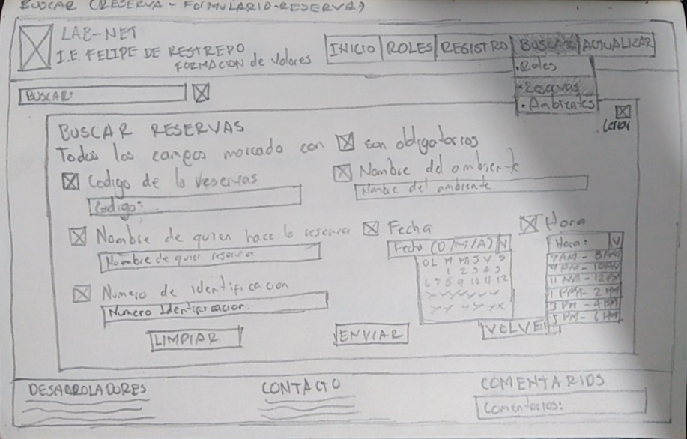 BUSCAR (RESERVA - FORMULARIO-RESERVA)
LAB-NET
I.E. FELIPE DE RESTREPO
FORMACION de Valores
INICIO ROLES REGISTRO BUSCAR ACTUALIZAR
• Roles
• Reservas
• Ambientes
BUSCAR:
Cerrar
BUSCAR RESERVAS
Todos los campos marcado con son obligatorios
Codigo de la reservas
Codigo:
Nombre del ambiente
Nombre del ambiente
Nombre de quien hace la reserva
Nombre de quien reserva
Fecha
Fecha (D/M/A) V
D L M M J V S
1 2 3 4 5
6 7 8 9 10 11 12
Hora
Hora: V
7 AM - 8 AM
9 AM - 10 AM
11 AM - 12 PM
1 PM - 2 PM
3 PM - 4 PM
5 PM - 6 PM
Numero de identificacion
Numero Identificacion
LIMPIAR ENVIAR VOLVER
DESARROLADORES
CONTACTO
COMENTARIOS
Comentarios: